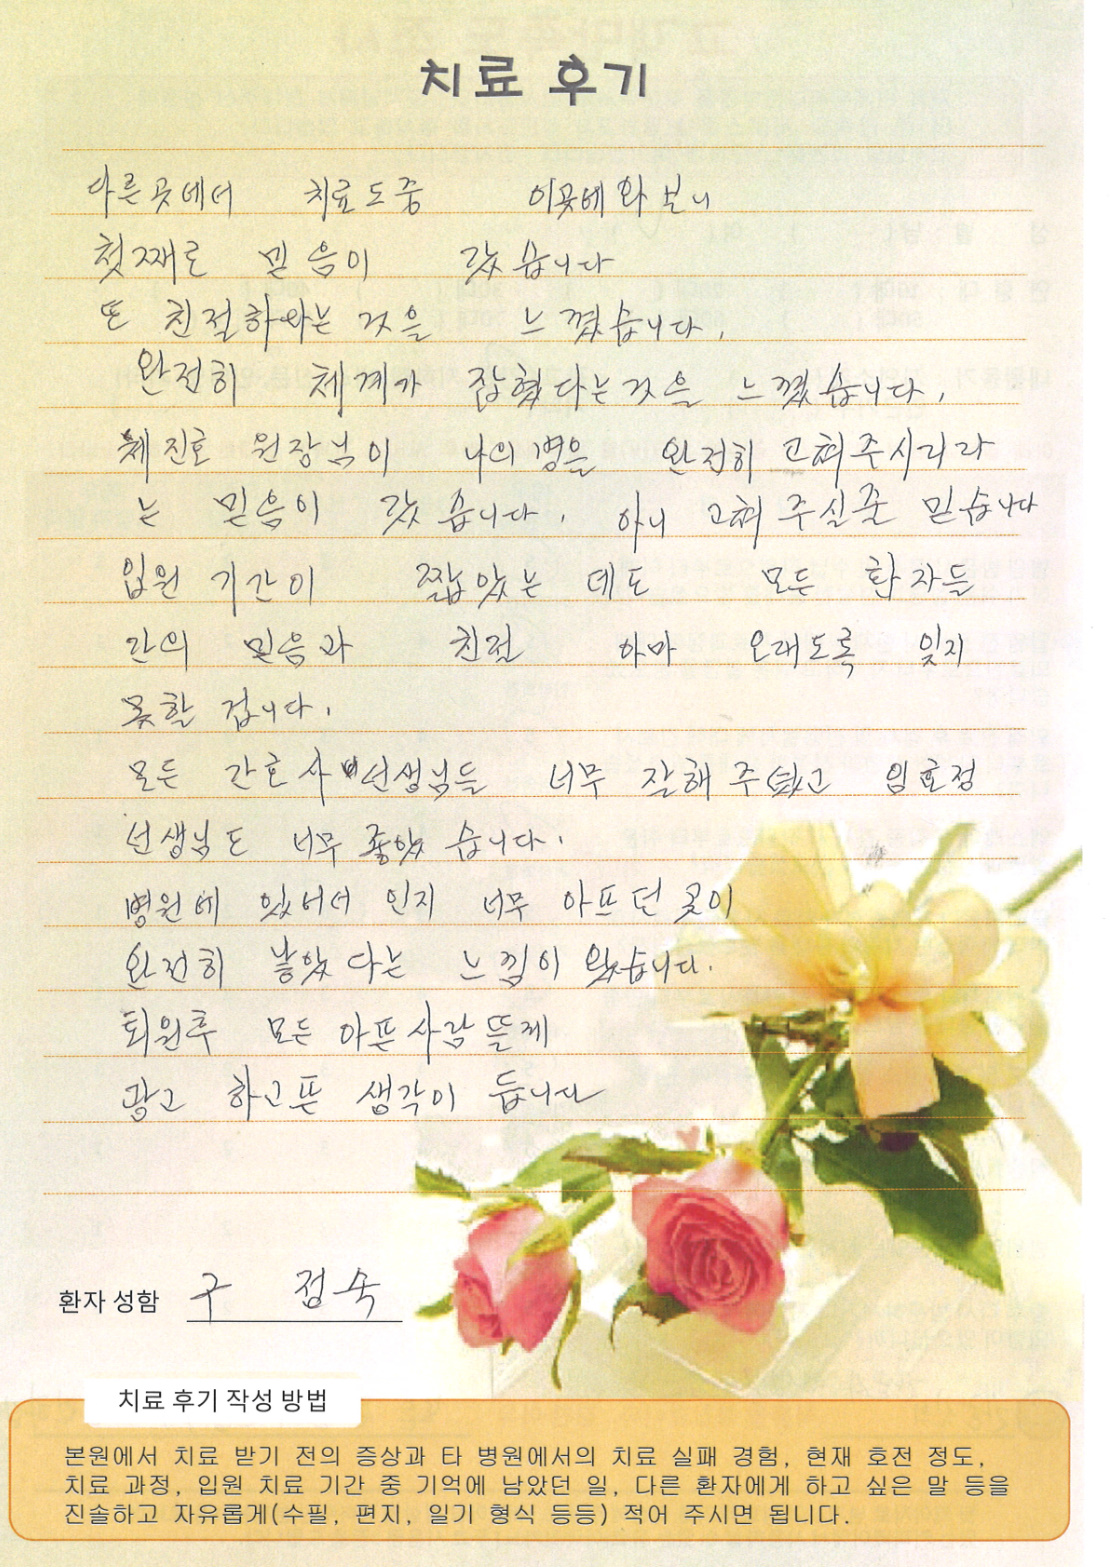 치료 후기
다른곳에서 치료도중 이곳에 와 보니
첫째로 믿음이 갔습니다
또 친절하다는 것을 느꼈습니다.
완전히 체계가 잡혔다는것을 느꼈습니다.
체진호 원장님이 나의 병을 완전히 고쳐주시리라
는 믿음이 갔습니다. 아니 고쳐 주실줄 믿습니다
입원 기간이 짧았는 데도 모든 환자들
간의 믿음과 친절 아마 오래도록 잊지
못할 겁니다.
모든 간호사 선생님들 너무 잘해 주셨고 임효정
선생님도 너무 좋았습니다.
병원에 있어서 인지 너무 아프던 곳이
완전히 낳았다는 느낌이 왔습니다.
퇴원후 모든 아픈사람뜰께
광고 하고픈 생각이 듭니다
환자 성함 구 정숙
치료 후기 작성 방법
본원에서 치료 받기 전의 증상과 타 병원에서의 치료 실패 경험, 현재 호전 정도,
치료 과정, 입원 치료 기간 중 기억에 남았던 일, 다른 환자에게 하고 싶은 말 등을
진솔하고 자유롭게(수필, 편지, 일기 형식 등등) 적어 주시면 됩니다.